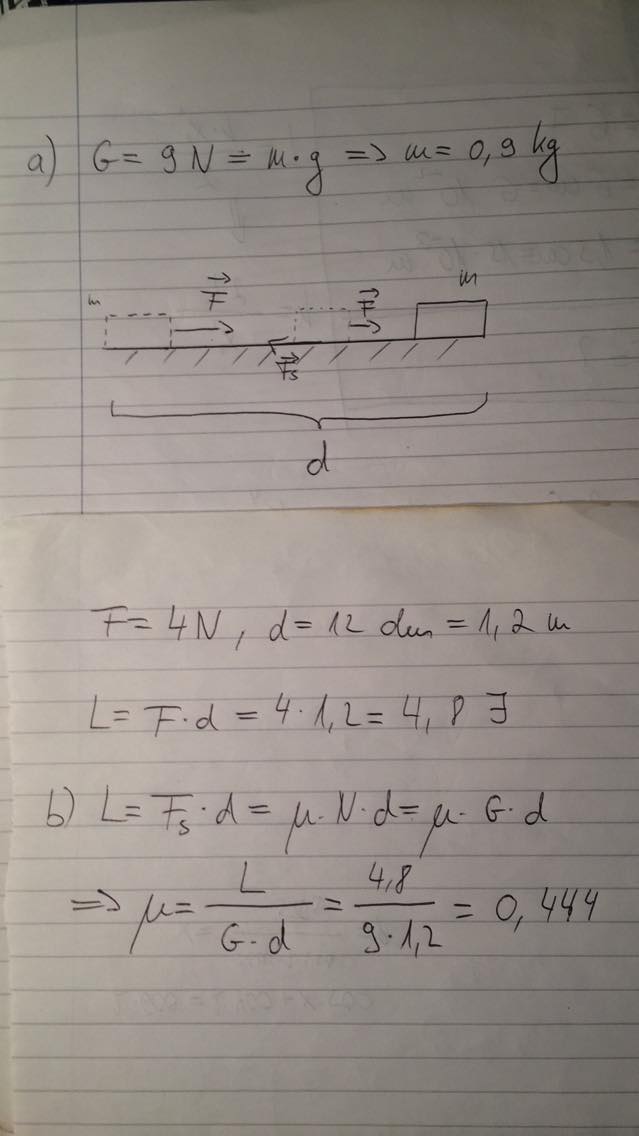 a) G = 9 N = m·g => m = 0,9 kg
m F⃗ F⃗ m
F⃗s
d
F = 4N, d = 12 dm = 1,2 m
L = F·d = 4·1,2 = 4,8 J
b) L = Fs·d = μ·N·d = μ·G·d
=> μ = L / G·d = 4,8 / 9·1,2 = 0,444